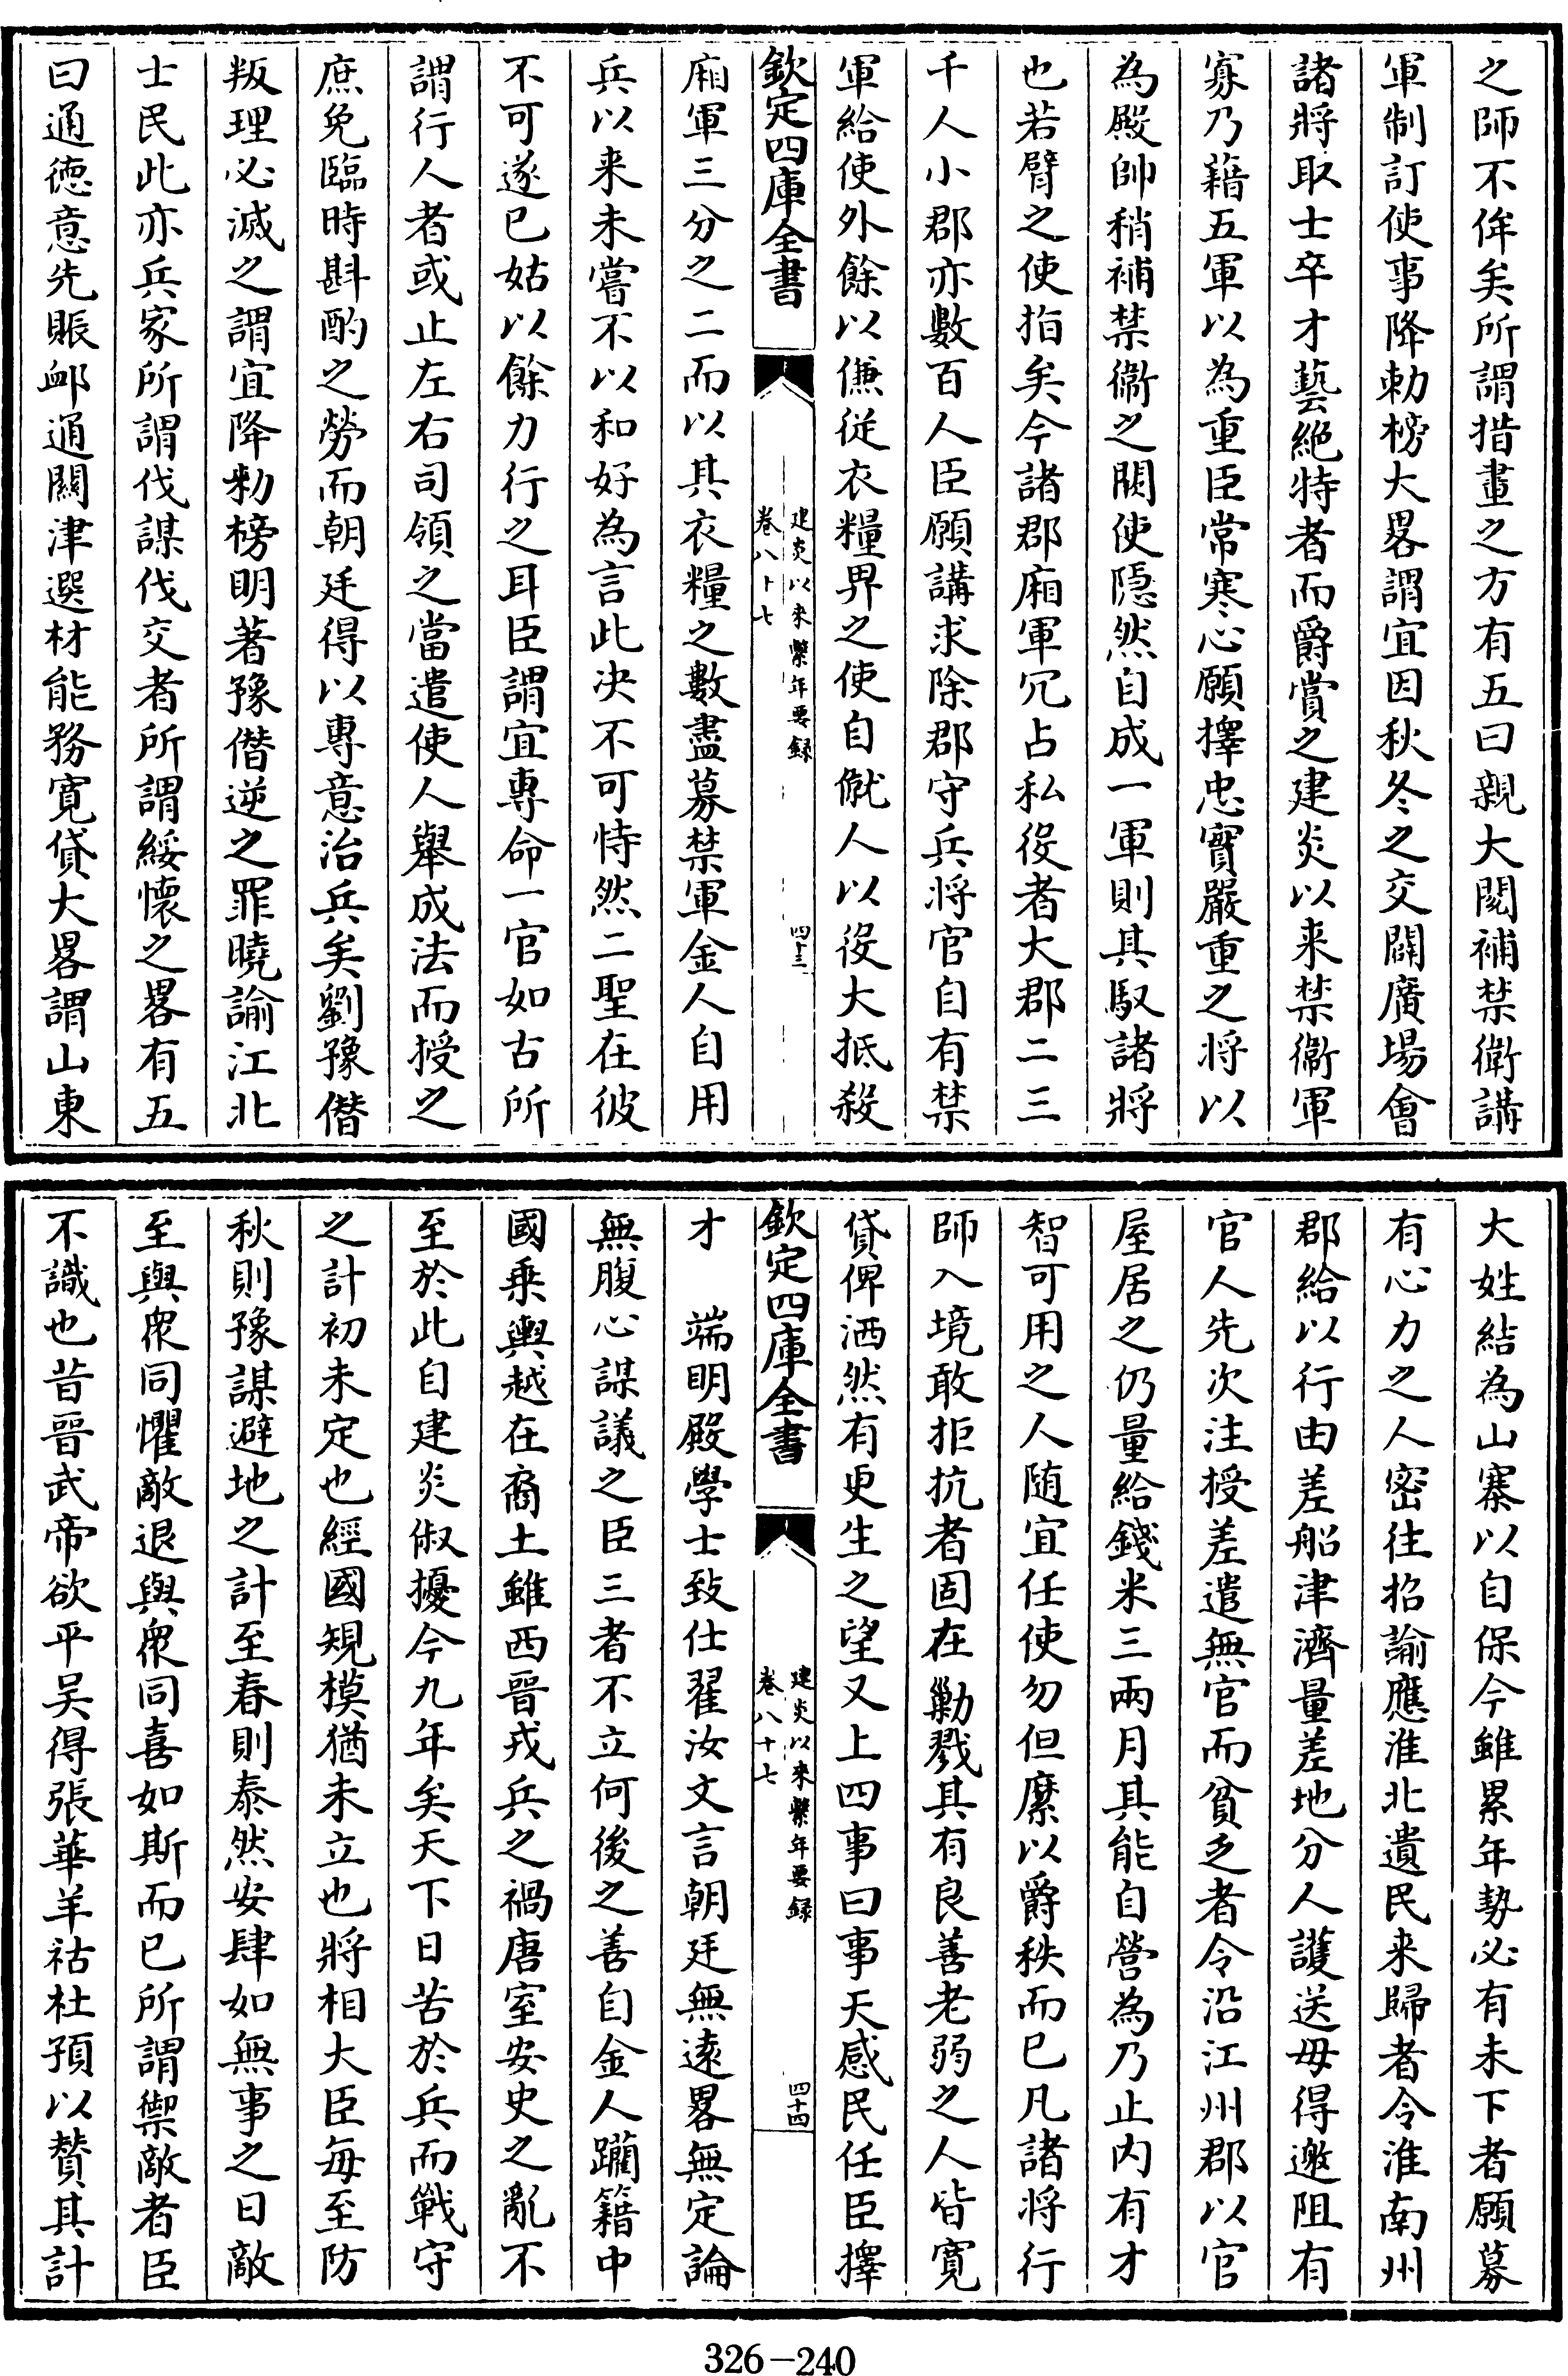 之師不侔矣所謂措畫之方有五曰親大閱補禁衛講
軍制訂使事降勅榜大畧謂宜因秋冬之交闢廣場會
諸將取士卒才藝絶特者而爵賞之建炎以来禁衞軍
寡乃藉五軍以為重臣常寒心願擇忠實嚴重之将以
為殿帥稍補禁衞之闕使隠然自成一軍則其馭諸將
也若臂之使指矣今諸郡廂軍冗占私役者大郡二三
千人小郡亦數百人臣願講求除郡守兵将官自有禁
軍給使外餘以傔従衣糧畀之使自僦人以役大抵殺
欽定四庫全書
建炎以来繫年要録
卷八十七
四十三
廂軍三分之二而以其衣糧之數盡募禁軍金人自用
兵以来未嘗不以和好為言此决不可恃然二聖在彼
不可遂已姑以餘力行之耳臣謂宜專命一官如古所
謂行人者或止左右司領之當遣使人舉成法而授之
庶免臨時斟酌之勞而朝廷得以專意治兵矣劉豫僭
叛理必滅之謂宜降勅榜明著豫僭逆之罪曉諭江北
士民此亦兵家所謂伐謀伐交者所謂綏懷之畧有五
曰通徳意先賬邺通關津選材能務寛貸大畧謂山東
大姓結為山寨以自保今雖累年勢必有未下者願募
有心力之人密往招諭應淮北遺民来歸者令淮南州
郡給以行由差船津濟量差地分人護送毋得邀阻有
官人先次注授差遣無官而貧乏者令沿江州郡以官
屋居之仍量給錢米三兩月其能自營為乃止内有才
智可用之人随宜任使勿但縻以爵秩而已凡諸将行
師入境敢拒抗者固在勦戮其有良善老弱之人皆寛
貸俾洒然有更生之望又上四事曰事天感民任臣擇
欽定四庫全書
建炎以来繫年要録
卷八十七
四十四
才　端明殿學士致仕翟汝文言朝廷無逺畧無定論
無腹心謀議之臣三者不立何後之善自金人躪籍中
國乗輿越在裔土雖西晉戎兵之禍唐室安史之亂不
至於此自建炎俶擾今九年矣天下日苦於兵而戰守
之計初未定也經國規模猶未立也將相大臣每至防
秋則豫謀避地之計至春則泰然安肆如無事之日敵
至與衆同懼敵退與衆同喜如斯而已所謂禦敵者臣
不識也昔晉武帝欲平吴得張華羊祜杜預以賛其計
326-240